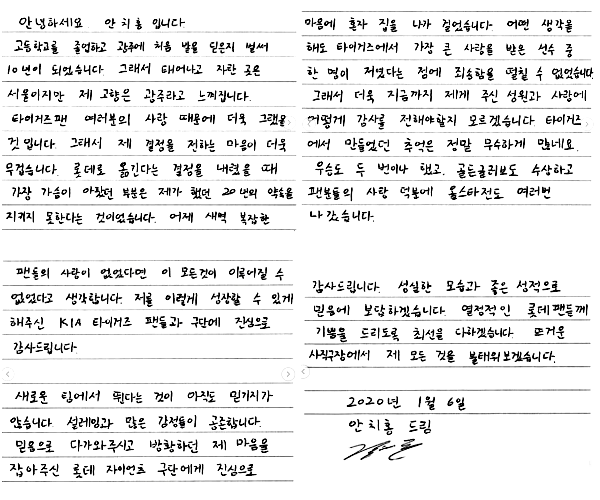 안녕하세요. 안치홍 입니다.
고등학교를 졸업하고 광주에 처음 발을 딛은지 벌써
10년이 되었습니다. 그래서 태어나고 자란 곳은
서울이지만 제 고향은 광주라고 느껴집니다.
타이거즈팬 여러분의 사랑 때문에 더욱 그랬을
것 입니다. 그래서 제 결정을 전하는 마음이 더욱
무겁습니다. 롯데로 옮긴다는 결정을 내렸을 때
가장 가슴이 아팠던 부분은 제가 했던 20번의 약속을
지키지 못한다는 것이었습니다. 어제 새벽 복잡한
마음에 혼자 집을 나가 걸었습니다. 어떤 생각을
해도 타이거즈에서 가장 큰 사랑을 받은 선수 중
한 명이 저였다는 점에 죄송함을 떨칠 수 없었습니다.
그래서 더욱 지금까지 제게 주신 성원과 사랑에
어떻게 감사를 전해야할지 모르겠습니다. 타이거즈
에서 만들었던 추억은 정말 무수하게 많네요.
우승도 두 번이나 했고, 골든글러브도 수상하고
팬분들의 사랑 덕분에 올스타전도 여러번
나갔습니다.
팬들의 사랑이 없었다면 이 모든것이 이루어질 수
없었다고 생각합니다. 저를 이렇게 성장할 수 있게
해주신 KIA 타이거즈 팬들과 구단에 진심으로
감사드립니다.
새로운 팀에서 뛴다는 것이 아직도 믿기지가
않습니다. 설레임과 많은 감정들이 공존합니다.
믿음으로 다가와주시고 방황하던 제 마음을
잡아주신 롯데 자이언츠 구단에게 진심으로
감사드립니다. 성실한 모습과 좋은 성적으로
믿음에 보답하겠습니다. 열정적인 롯데팬들께
기쁨을 드리도록 최선을 다하겠습니다. 뜨거운
사직구장에서 제 모든 것을 불태워보겠습니다.
2020년 1월 6일
안치홍 드림